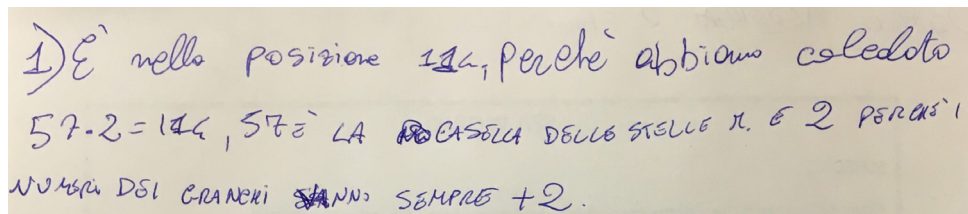 1) È nella posizione 114, perchè abbiamo calcolato
57·2=114, 57 È LA CASELLA DELLE STELLE M. E 2 PERCHÈ I
NUMERI DEI GRANCHI VANNO SEMPRE +2.